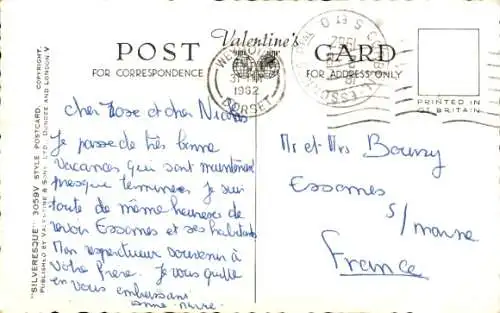 POST
Valentine's
CARD
FOR CORRESPONDENCE
FOR ADDRESS ONLY
PRINTED IN
GT BRITAIN
1962
DORSET
"SILVERESQUE" 3059V STYLE POSTCARD. COPYRIGHT.
PUBLISHED BY VALENTINE & SONS LTD. DUNDEE AND LONDON
cher Rose et cher Nicolas
Je passe de très bonne
vacances qui sont maintenant
presque terminées je suis
toute de même heureuse de
revoir Essomes et ses habitants
Mon respectueux souvenir à
votre frère. Je vous quitte
en vous embrassant
anne-marie
Mr et Mrs
Essomes
s/marne
France